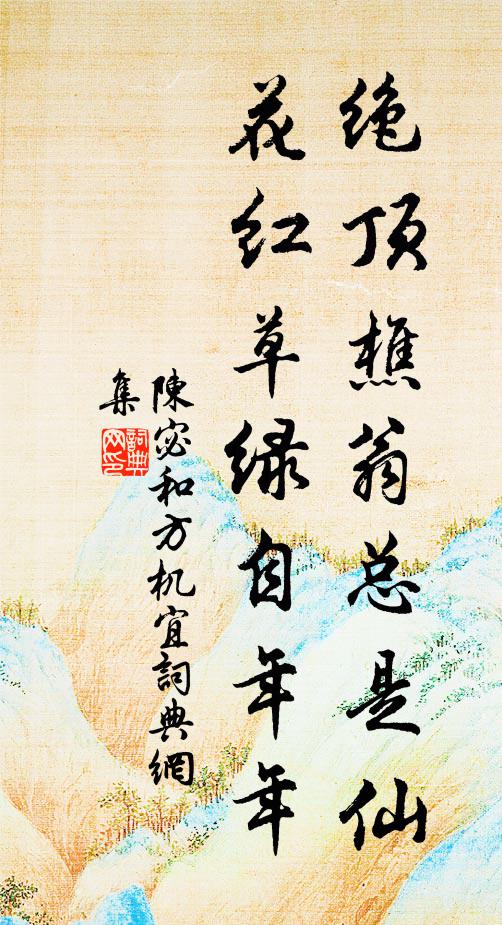 绝顶樵翁总是仙
花红草绿自年年
陳宓和方机宜詞典網
集
詞典
网印